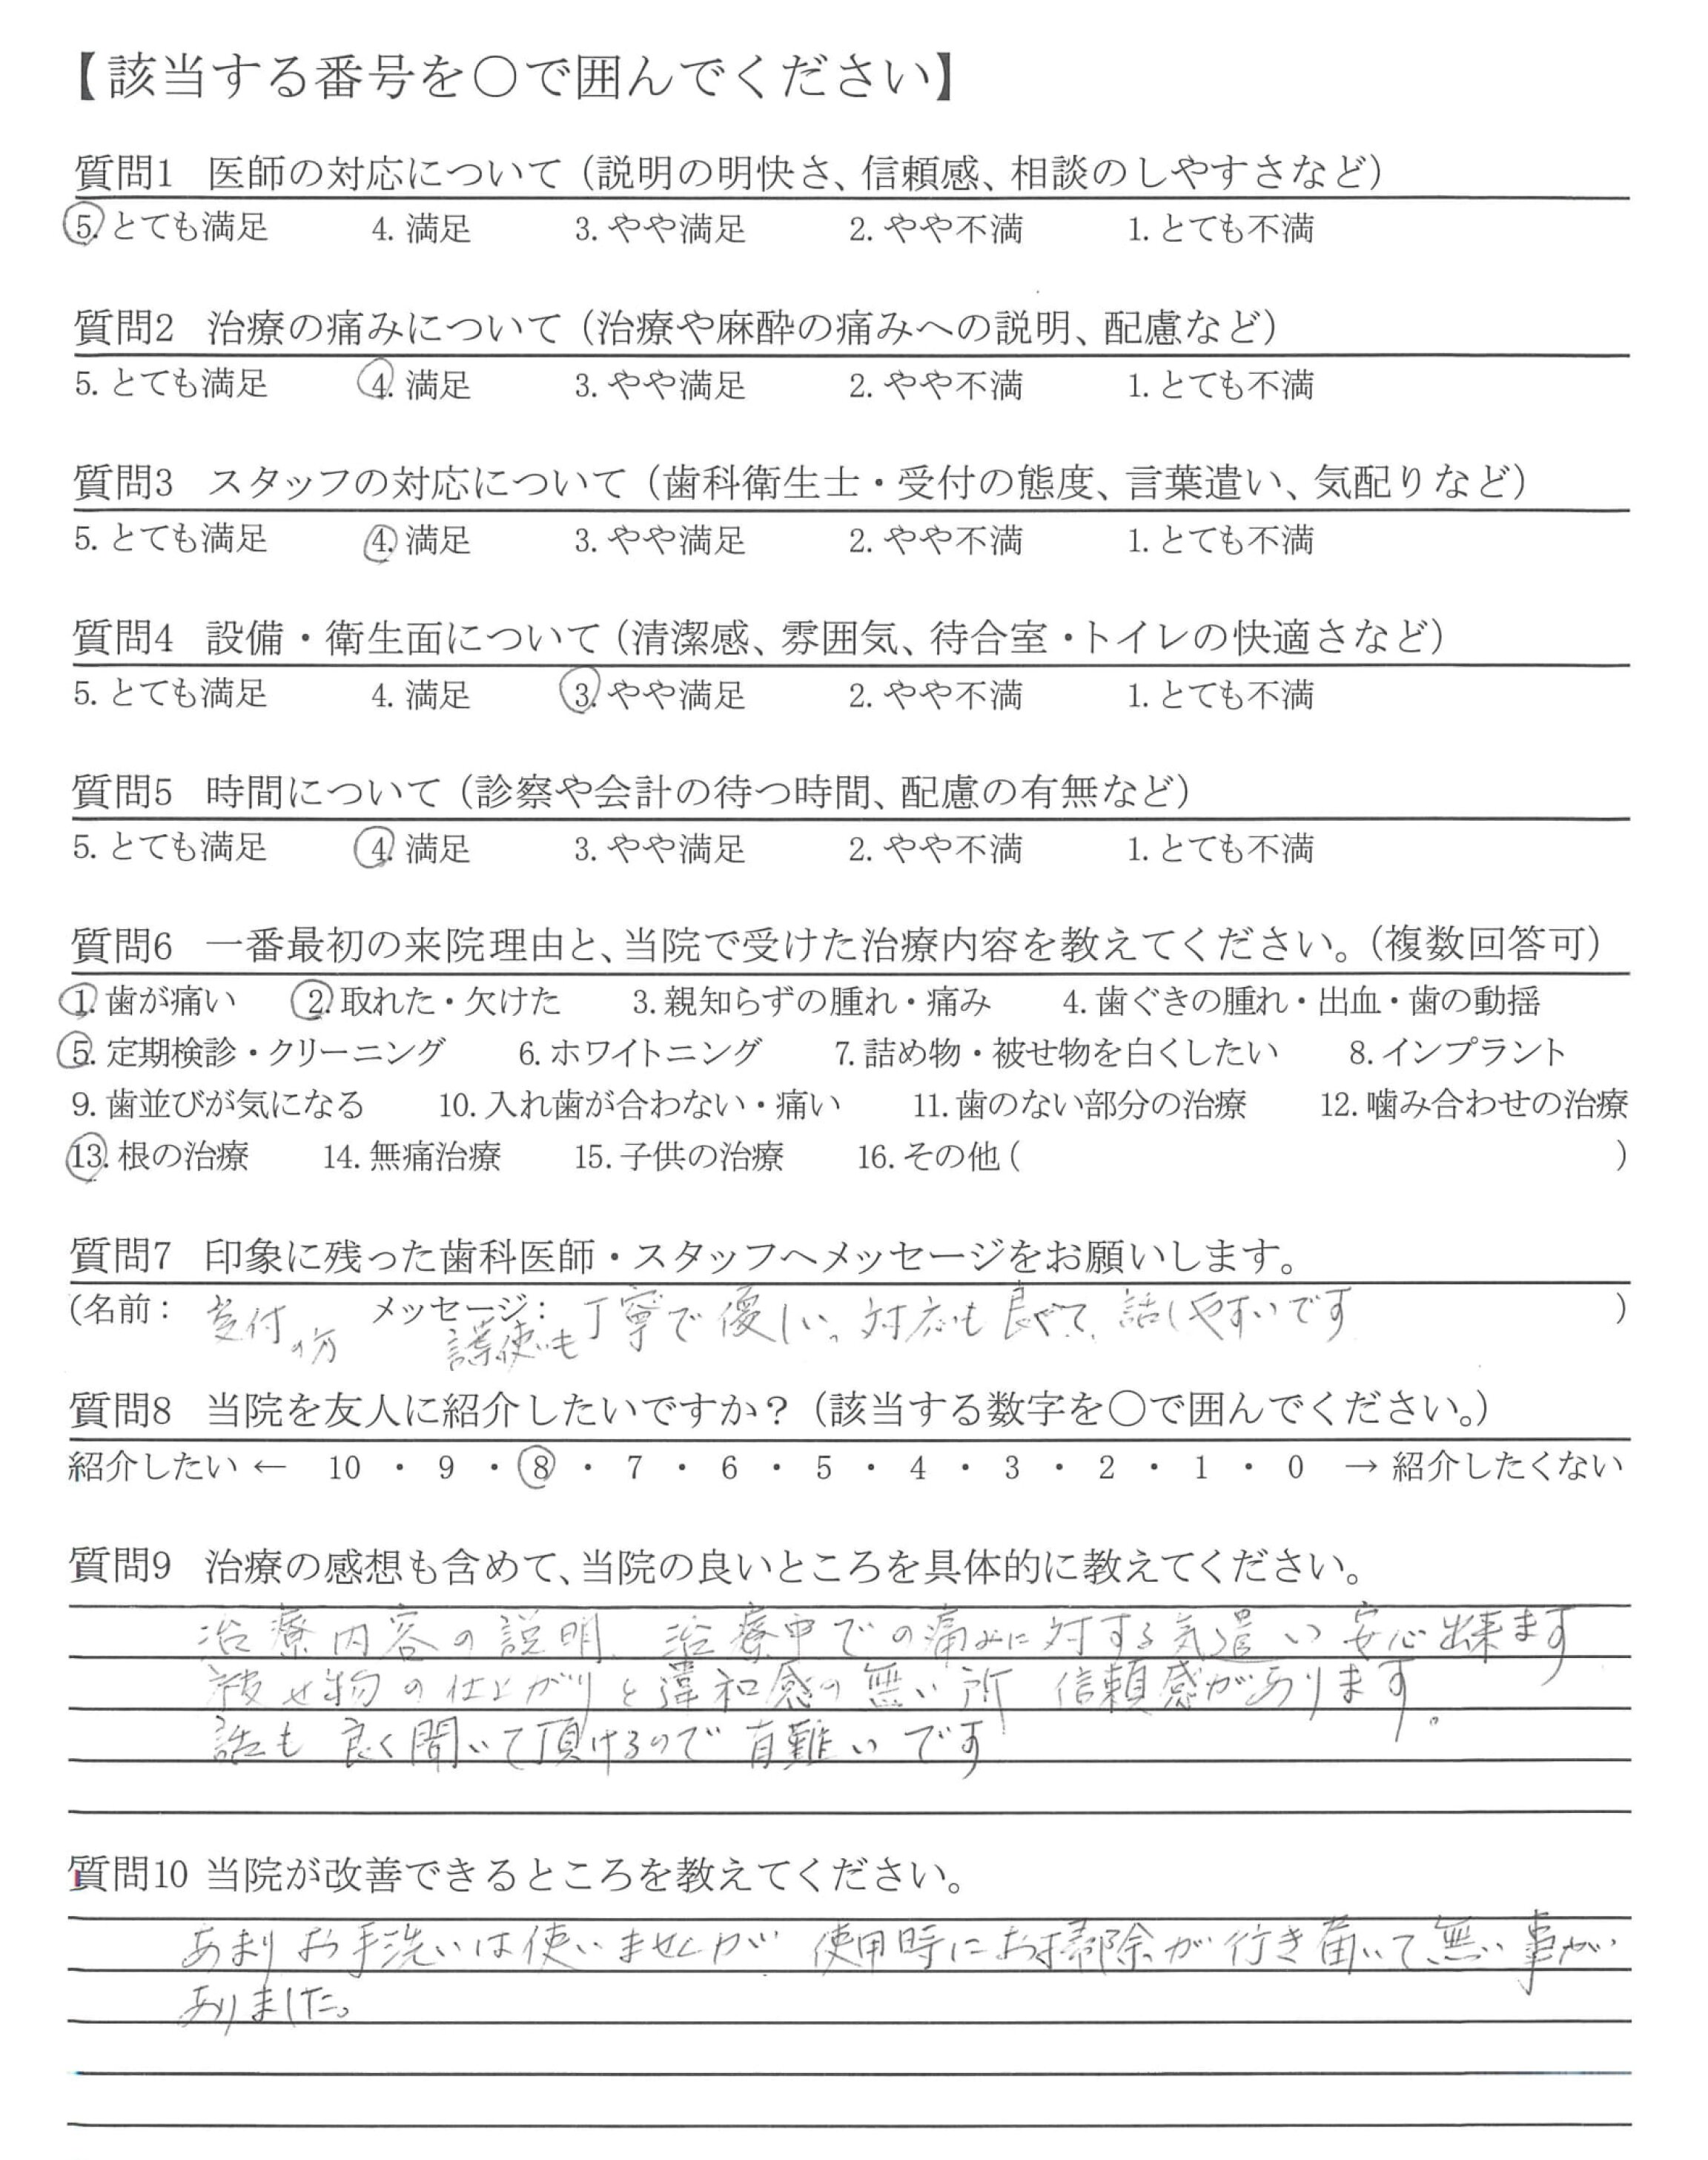 【該当する番号を○で囲んでください】
質問1 医師の対応について（説明の明快さ、信頼感、相談のしやすさなど）
5. とても満足 4. 満足 3. やや満足 2. やや不満 1. とても不満
質問2 治療の痛みについて（治療や麻酔の痛みへの説明、配慮など）
5. とても満足 4. 満足 3. やや満足 2. やや不満 1. とても不満
質問3 スタッフの対応について（歯科衛生士・受付の態度、言葉遣い、気配りなど）
5. とても満足 4. 満足 3. やや満足 2. やや不満 1. とても不満
質問4 設備・衛生面について（清潔感、雰囲気、待合室・トイレの快適さなど）
5. とても満足 4. 満足 3. やや満足 2. やや不満 1. とても不満
質問5 時間について（診察や会計の待つ時間、配慮の有無など）
5. とても満足 4. 満足 3. やや満足 2. やや不満 1. とても不満
質問6 一番最初の来院理由と、当院で受けた治療内容を教えてください。（複数回答可）
1. 歯が痛い 2. 取れた・欠けた 3. 親知らずの腫れ・痛み 4. 歯ぐきの腫れ・出血・歯の動揺
5. 定期検診・クリーニング 6. ホワイトニング 7. 詰め物・被せ物を白くしたい 8. インプラント
9. 歯並びが気になる 10. 入れ歯が合わない・痛い 11. 歯のない部分の治療 12. 噛み合わせの治療
13. 根の治療 14. 無痛治療 15. 子供の治療 16. その他（ ）
質問7 印象に残った歯科医師・スタッフへメッセージをお願いします。
（名前： 受付の方 メッセージ： 言葉使いも 丁寧で優しい。対応も良くて、話しやすいです ）
質問8 当院を友人に紹介したいですか？（該当する数字を○で囲んでください。）
紹介したい ← 10 ・ 9 ・ 8 ・ 7 ・ 6 ・ 5 ・ 4 ・ 3 ・ 2 ・ 1 ・ 0 → 紹介したくない
質問9 治療の感想も含めて、当院の良いところを具体的に教えてください。
治療内容の説明、治療中での痛みに対する気遣い 安心出来ます
被せ物の仕上がりと違和感の無い所 信頼感があります。
話も良く聞いて頂けるので有難いです
質問10 当院が改善できるところを教えてください。
あまりお手洗いは使いませんが 使用時にお掃除が行き届いて無い事が
ありました。